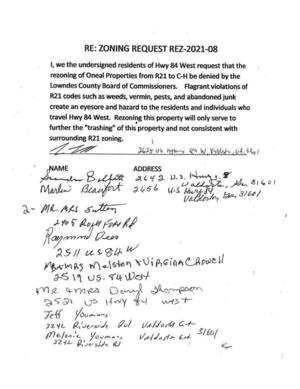 RE: ZONING REQUEST REZ-2021-08
I, we the undersigned residents of Hwy 84 West request that the
rezoning of Oneal Properties from R21 to C-H be denied by the
Lowndes County Board of Commissioners. Flagrant violations of
R21 codes such as weeds, vermin, pests, and abandoned junk
create an eyesore and hazard to the residents and individuals who
travel Hwy 84 West. Rezoning this property will only serve to
further the "trashing" of this property and not consistent with
surrounding R21 zoning.
84 W, Valdosta, GA
NAME ADDRESS
2642 U.S. Hwy
Valdosta, 31601
Marlen Beaufort 2656 U.S Hwy
Valdosta 31601
2- MR MRS Sutton
Rd
Raymond
2511 US 84 W
MR & MRS VIRGINIA
2519 US. 84 West
MR & MRS Daryl Thompson
2521 US Hwy 84 west
Jeff Youmans
3242 Riverside Rd Valdosta GA
Melanie Youmans Valdosta GA 31601
3242 Riverside Rd